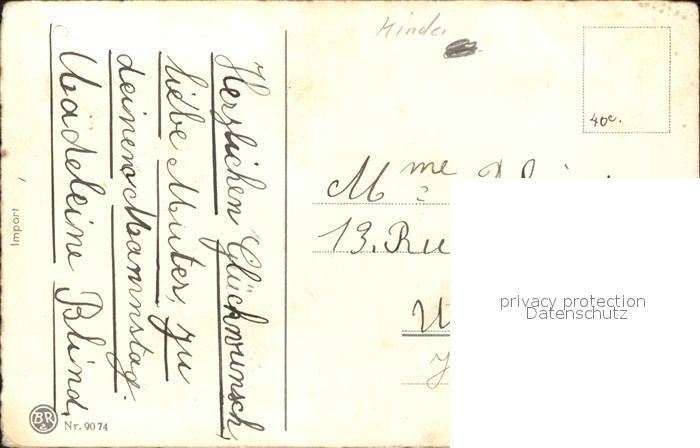 Kinder
40c.
Herzlichen Glückwunsch,
liebe Mutter, zu
deinen Mannstag.
Madeleine Blind,
Mme
13. Ru
privacy protection
Datenschutz
Import
BR
Nr. 9074